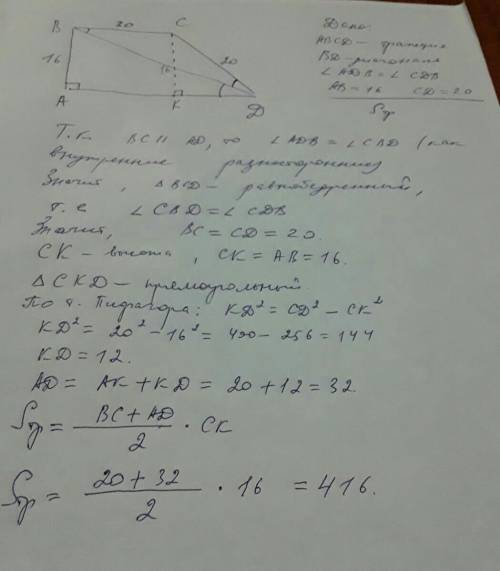 B 20 C
16 16 20
A K D
Дано:
ABCD – трапеция
BD – диагональ
∠ADB = ∠CDB
AB = 16 CD = 20
Sтр
Т.к. BC || AD, то ∠ADB = ∠CBD (как
внутренние разносторонние)
Значит, △BCD – равнобедренный,
т.е ∠CBD = ∠CDB
Значит, BC = CD = 20.
CK – высота, CK = AB = 16.
△CKD – прямоугольный.
По т. Пифагора: KD² = CD² – CK²
KD² = 20² – 16² = 400 – 256 = 144
KD = 12.
AD = AK + KD = 20 + 12 = 32.
Sтр = (BC + AD)/2 · CK
Sтр = (20 + 32)/2 · 16 = 416.